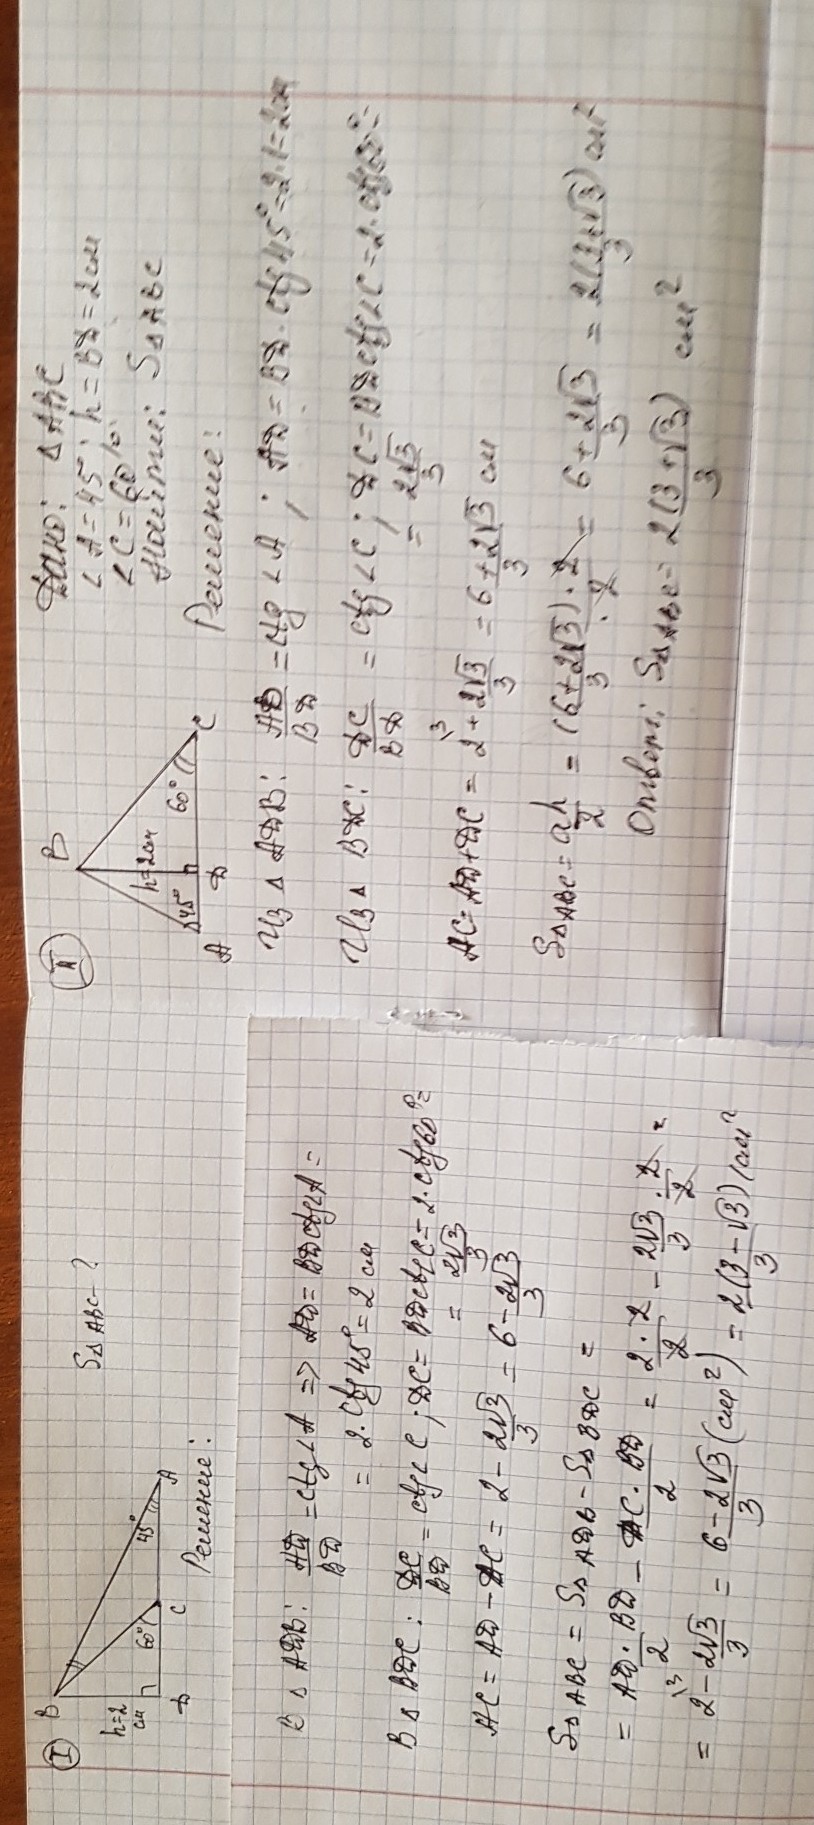 I
B
h=2
см
60°
45°
D
C
A
S△ABC-?
Решение:
В △ ADB: AD/BD = ctg∠A => AD = BD ctg∠A =
= 2·ctg 45° = 2 см
В △ BDC: DC/BD = ctg∠C; DC = BD ctg∠C = 2·ctg60° =
= 2√3/3
AC = AD - DC = 2 - 2√3/3 = 6-2√3/3
S△ABC = S△ADB - S△BDC =
= AD·BD/2 - DC·BD/2 = 2·2/2 - 2√3/3 · 2/2 =
= 2\3 - 2√3/3 = 6-2√3/3 (см²) = 2(3-√3)/3 см²
II
B
h=2см
45°
60°
A
D
C
Дано: △ABC
∠A=45°; h=BD=2см
∠C=60°
Найти: S△ABC
Решение:
Из △ ADB: AD/BD = ctg∠A; AD = BD·ctg45° = 2·1 = 2см
Из △ BDC: DC/BD = ctg∠C; DC = BD ctg∠C = 2·ctg60° =
= 2√3/3
AC = AD+DC = 2\3 + 2√3/3 = 6+2√3/3 см
S△ABC = ah/2 = (6+2√3)·2/3·2 = 6+2√3/3 = 2(3+√3)/3 см²
Ответ: S△ABC = 2(3+√3)/3 см²